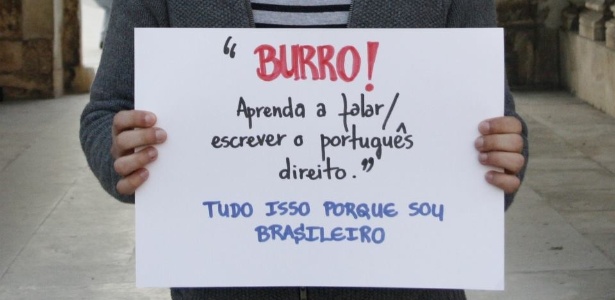 “BURRO!
Aprenda a falar/
escrever o português
direito.”
TUDO ISSO PORQUE SOU
BRASILEIRO